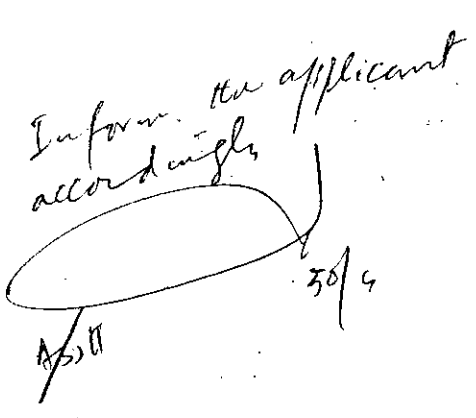 Inform the applicant
accordingly
30/4